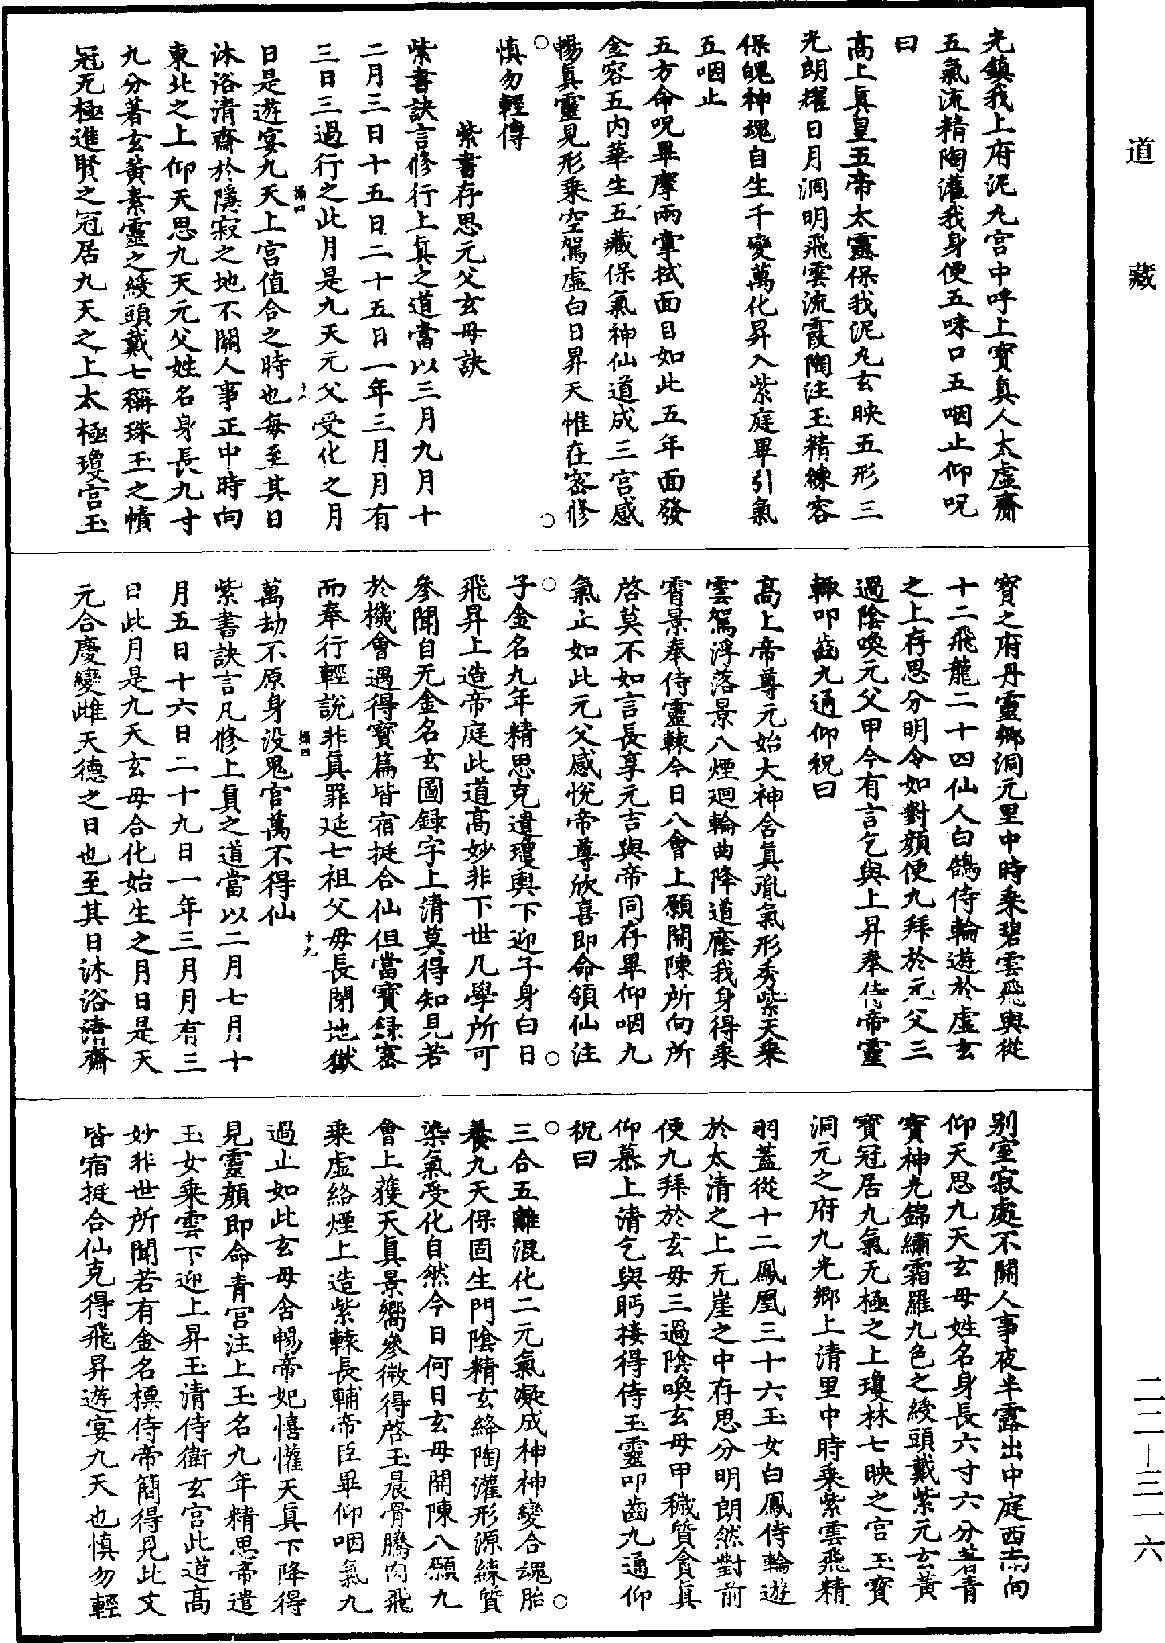 道藏
光鎮我上府泥丸宮中呼上寶真人太虛齋
五氣流精陶灌我身便五味口五咽止仰呪
曰
高上真皇五帝太靈保我泥丸玄映五形三
光朗耀日月洞明飛雲流霞陶注玉精練容
保魄神魂自生千變萬化昇入紫庭畢引氣
五咽止
五方命呪畢摩兩掌拭面目如此五年面發
金容五內華生五藏保氣神仙道成三宮感
暢真靈見形乘空駕虛白日昇天惟在密修
慎勿輕傳
紫書存思元父玄母訣
紫書訣言修行上真之道當以三月九月十
二月三日十五日二十五日一年三月月有
三日三過行之此月是九天元父受化之月
日是遊宴九天上宮值合之時也每至其日
沐浴清齋於隱寂之地不關人事正中時向
東北之上仰天思九天元父姓名身長九寸
九分著玄黃素靈之綬頭戴七稱珠玉之幘
冠无極進賢之冠居九天之上太極瓊宮玉
寶之府丹靈鄉洞元里中時乘碧雲飛輿從
十二飛龍二十四仙人白鵠侍輪遊於虛玄
之上存思分明令如對顏便九拜於元父三
過陰喚元父甲今有言乞與上昇奉侍帝靈
輙叩齒九通仰祝曰
高上帝尊元始大神含真胤氣形秀紫天乘
雲駕浮落景八煙迴輪曲降道應我身得乘
霄景奉侍靈轅今日八會上願開陳所向所
啓莫不如言長享元吉與帝同存畢仰咽九
氣止如此元父感悅帝尊欣喜即命領仙注
子金名九年精思克遣瓊輿下迎子身白日
飛昇上造帝庭此道高妙非下世凡學所可
參聞自无金名玄圖錄字上清莫得知見若
於機會遇得寶篇皆宿挺合仙但當寶錄密
而奉行輕說非真罪延七祖父母長閉地獄
萬劫不原身沒鬼官萬不得仙
紫書訣言凡修上真之道當以二月七月十
月五日十六日二十九日一年三月月有三
日此月是九天玄母合化始生之月日是天
元合慶變雌天德之日也至其日沐浴清齋
別室寂處不關人事夜半露出中庭西南向
仰天思九天玄母姓名身長六寸六分著青
寶神光錦繡霜羅九色之綬頭戴紫元玄黃
寶冠居九氣无極之上瓊林七映之宮玉寶
洞元之府九光鄉上清里中時乘紫雲飛精
羽蓋從十二鳳凰三十六玉女白鳳侍輪遊
於太清之上无崖之中存思分明朗然對前
便九拜於玄母三過陰喚玄母甲穢質貪真
仰慕上清乞與眄接得侍玉靈叩齒九通仰
祝曰
三合五離混化二元氣凝成神神變合魂胎
養九天保固生門陰精玄絳陶灌形源練質
染氣受化自然今日何日玄母開陳八願九
會上護天真景嚮參微得啓玉晨骨騰肉飛
乘虛絡煙上造紫轅長輔帝臣畢仰咽氣九
過止如此玄母含暢帝妃憘懽天真下降得
見靈顏即命青宮注上玉名九年精思帝遣
玉女乘雲下迎上昇玉清侍衛玄宮此道高
妙非世所聞若有金名標侍帝簡得見此文
皆宿挺合仙克得飛昇遊宴九天也慎勿輕
二二—三一六